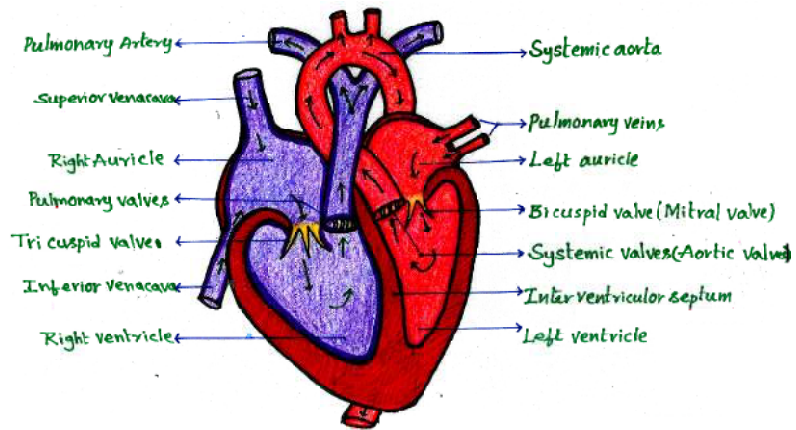 Pulmonary Artery
Superior venacava
Right Auricle
Pulmonary valves
Tri cuspid valves
Inferior venacava
Right ventricle
Systemic aorta
Pulmonary veins
Left auricle
Bicuspid valve (Mitral valve)
Systemic valves (Aortic valves)
Inter ventriculor septum
Left ventricle